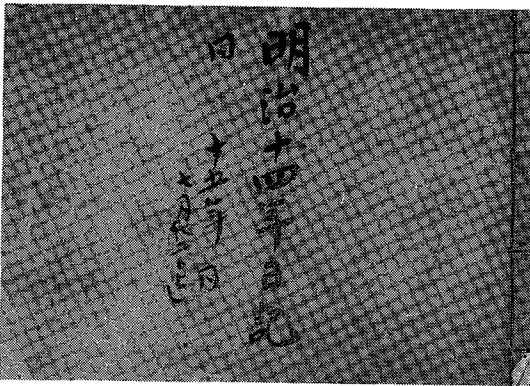 明治十四年日記
同 十五年 同
七月